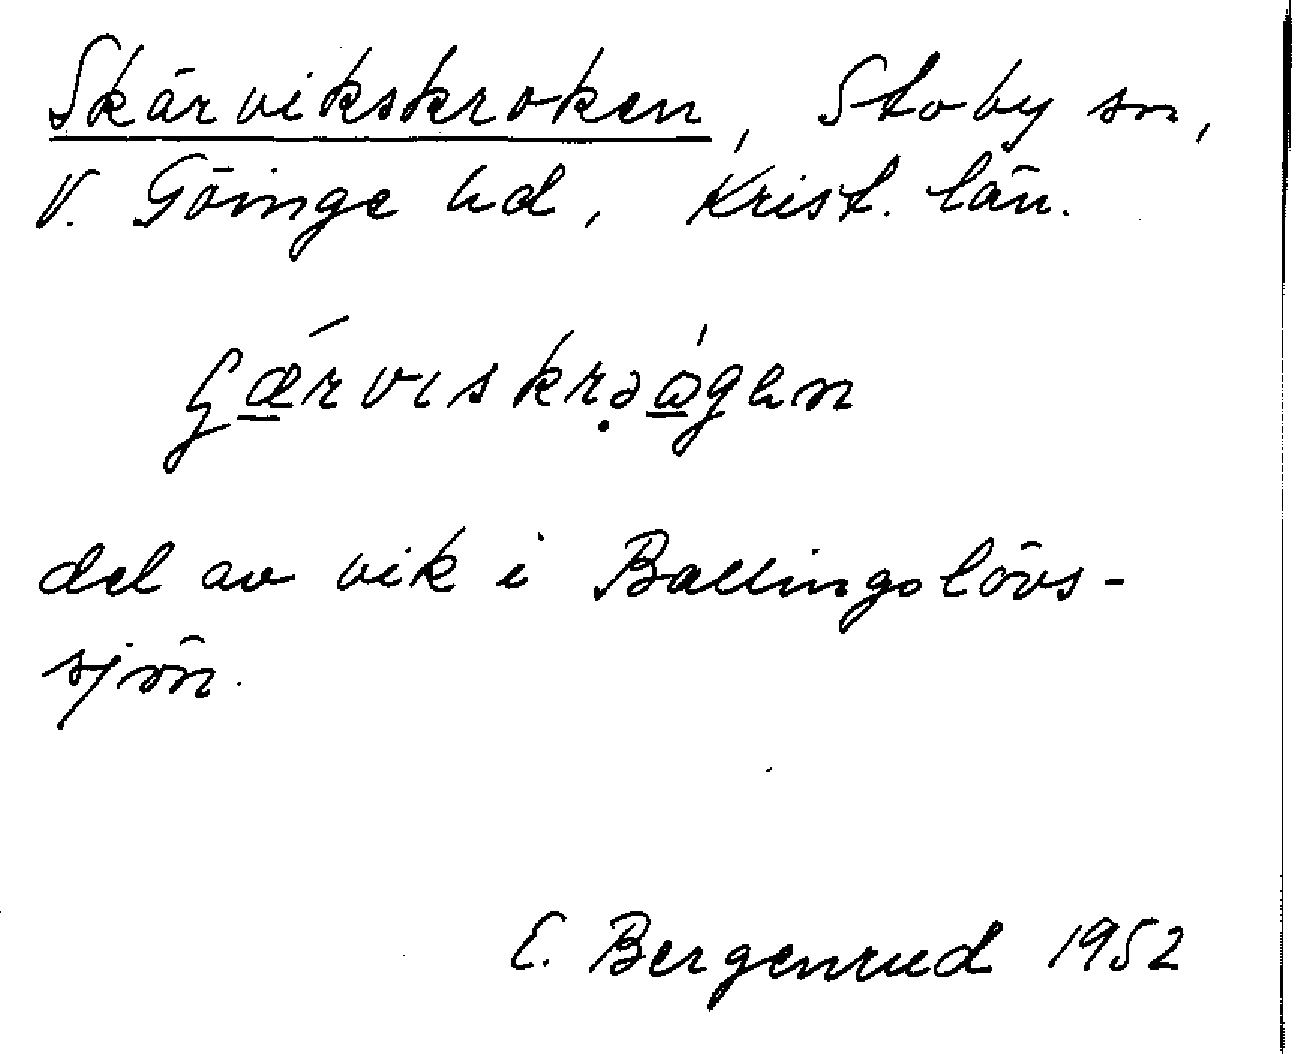 Skärvikskroken, Stoby sn,
V. Göinge hd, Krist. län.
del av vik i Ballingslövs-
sjön.
E. Bergenrud 1952